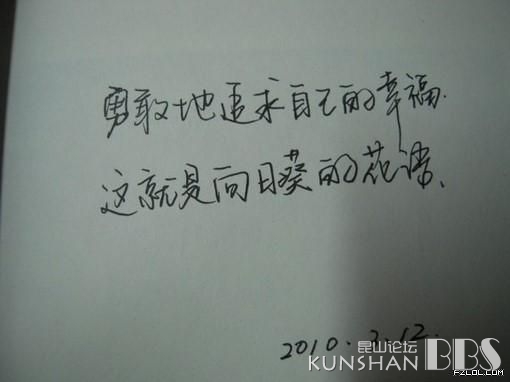 勇敢地追求自己的幸福.
这就是向日葵的花语.
2010.3.12.
昆山论坛
KUNSHAN BBS
FZLOL.COM